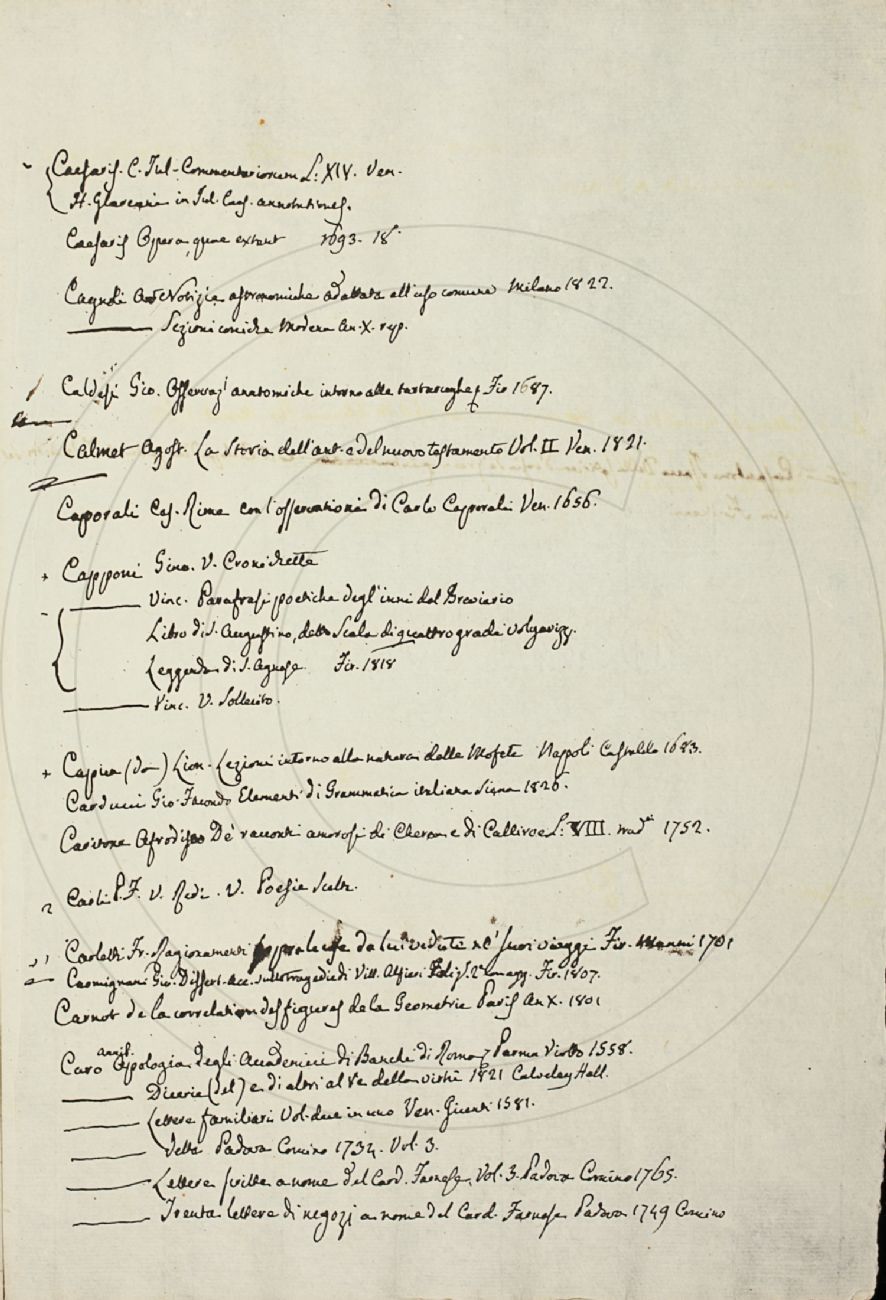 Caesaris. C. Jul. Commentariorum L: XIV. Ven.
H. Glareani in Jul. Caes. annotationes.
Caesaris Opera quae extant 1693. 18.
Cagnoli Ant. Notizie astronomiche adattate all'uso comune Milano 1822.
Sezioni coniche Modena An. X. rep.
Caldesi Gio. Osservazi anatomiche intorno alle tartarughe Fir 1687.
Calmet Agost. La Storia dell'ant. e del nuovo testamento Vol. II Ven. 1821.
Caporali Ces. Rime con l'osservationi di Carlo Caporali Ven. 1656.
+ Capponi Gino. V. Cronichette
Vinc. Parafrasi poetiche degl'inni del Breviario
Libro di S. Augustino, detto Scala di quattro gradi volgarizz.
Leggenda di S. Agnese Fir. 1818
Vinc. V. Sollecito.
+ Capua (da) Lion. Lezioni intorno alla natura delle Mofete Nappoli Castaldo 1683.
Carducci Gio. Facondo Elementi di Grammatica italiana Siena 1826.
Caritone Afrodiseo De' racconti amorosi di Cherea e di Calliroe L: VIII. trad. 1752.
Carli P. F. V. Redi. V. Poesie Scelte.
Carletti Fr. Ragionamenti sopra le cose da lui vedute ne' suoi viaggi Fir. Manni 1701
Carmignani Gio. Dissert. Acc. sulle tragedie di Vitt. Alfieri Fir. 1807.
Carnot de la correlation des figures de la Geometrie Paris An X. 1801
Caro Annib. Apologia degli Accademici di Banchi di Roma, Parma Viotto 1558.
Dicerie (del) e di altri al Re della virtù 1821 Calveley Hall.
Lettere familiari Vol. due in uno Ven. Giunti 1581.
dette Padova Comino 1734. Vol. 3.
Lettere scritte a nome del Card. Farnese. Vol. 3. Padova Comino 1765.
Trenta lettere di negozj a nome del Card. Farnese Padova 1749 Comino